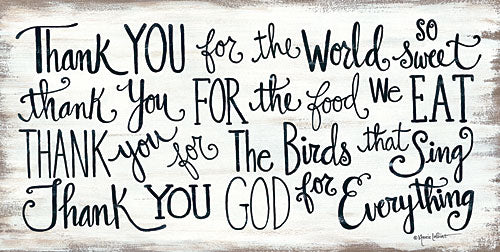 Thank YOU for the World so sweet
thank You FOR the food We EAT
THANK you for The Birds that Sing
Thank YOU GOD for Everything